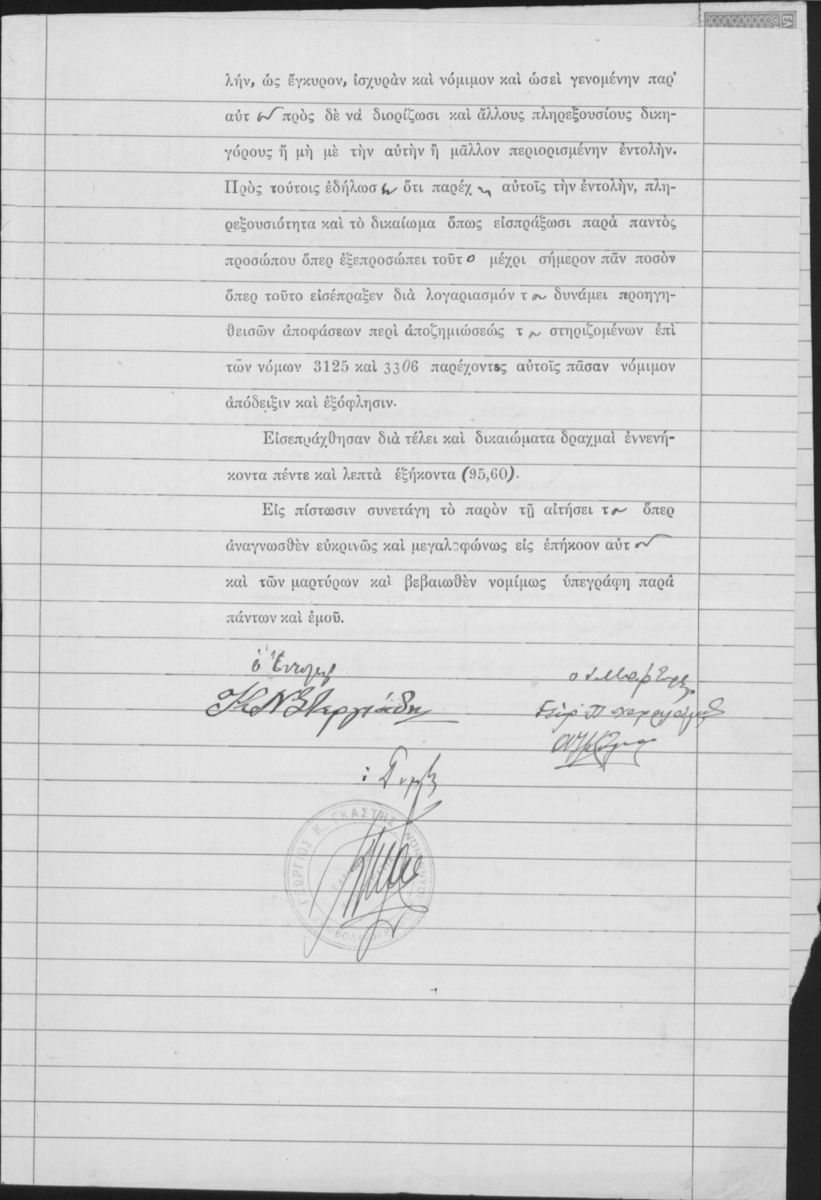 λήν, ὡς ἔγκυρον, ἰσχυρὰν καὶ νόμιμον καὶ ὡσεὶ γενομένην παρ'
αὐτ πρὸς δὲ νὰ διορίζωσι καὶ ἄλλους πληρεξουσίους δικη-
γόρους ἢ μὴ μὲ τὴν αὐτὴν ἢ μᾶλλον περιορισμένην ἐντολήν.
Πρὸς τούτοις ἐδήλωσ ὅτι παρέχ αὐτοῖς τὴν ἐντολὴν, πλη-
ρεξουσιότητα καὶ τὸ δικαίωμα ὅπως εἰσπράξωσι παρὰ παντὸς
προσώπου ὅπερ ἐξεπροσώπει τοῦτο μέχρι σήμερον πᾶν ποσὸν
ὅπερ τοῦτο εἰσέπραξεν διὰ λογαριασμόν τ δυνάμει προηγη-
θεισῶν ἀποφάσεων περὶ ἀποζημιώσεώς τ στηριζομένων ἐπὶ
τῶν νόμων 3125 καὶ 3306 παρέχοντες αὐτοῖς πᾶσαν νόμιμον
ἀπόδειξιν καὶ ἐξόφλησιν.
Εἰσεπράχθησαν διὰ τέλει καὶ δικαιώματα δραχμαὶ ἐννενή-
κοντα πέντε καὶ λεπτὰ ἑξήκοντα (95,60).
Εἰς πίστωσιν συνετάγη τὸ παρὸν τῇ αἰτήσει τ ὅπερ
ἀναγνωσθὲν εὐκρινῶς καὶ μεγαλοφώνως εἰς ἐπήκοον αὐτ
καὶ τῶν μαρτύρων καὶ βεβαιωθὲν νομίμως ὑπεγράφη παρὰ
πάντων καὶ ἐμοῦ.
ΓΕΩΡΓΙΟΣ Κ. ΓΚΑΣΤΗΣ